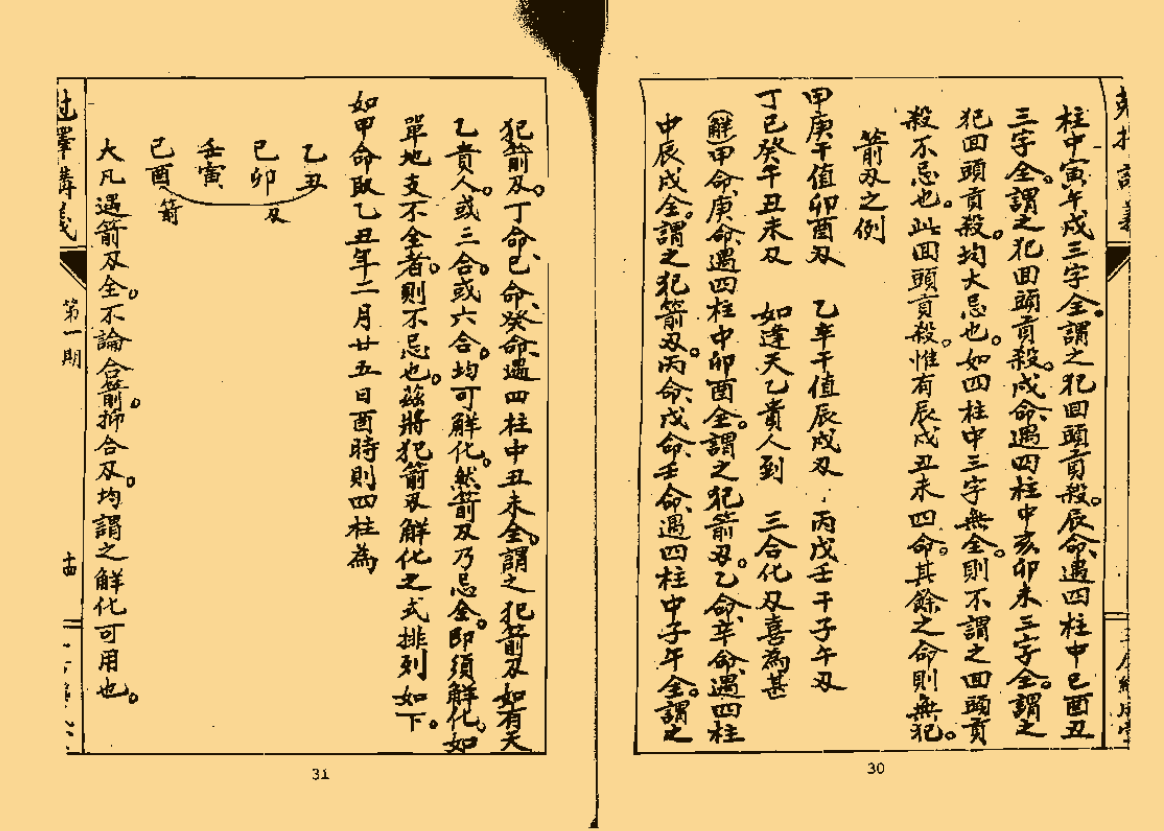 柱中寅午戌三字全。謂之犯回頭貢殺。辰命、遇四柱中巳酉丑
三字全。謂之犯回頭貢殺。戌命、遇四柱中亥卯未三字全。謂之
犯回頭貢殺。均大忌也。如四柱中三字無全。則不謂之回頭貢
殺不忌也。此回頭貢殺。惟有辰戌丑未四命。其餘之命則無犯。
箭刃之例
甲庚干值卯酉刃 乙辛干值辰戌刃 丙戊壬干子午刃
丁己癸午丑未刃 如達天乙貴人到 三合化刃喜為甚
(解)甲命、庚命、遇四柱中卯酉全。謂之犯箭刃。乙命、辛命、遇四柱
中辰戌全。謂之犯箭刃。丙命、戊命、壬命、遇四柱中子午全。謂之
30
犯箭刃。丁命、己命、癸命、遇四柱中丑未全。謂之犯箭刃如有天
乙貴人。或三合。或六合。均可解化。然箭刃乃忌全。即須解化。如
單地支不全者。則不忌也。茲將犯箭刃解化之式排列如下。
如甲命取乙丑年二月廿五日酉時則四柱為
乙丑
己卯 刃
壬寅
己酉 箭
大凡遇箭刃全。不論合箭。抑合刃。均謂之解化可用也。
講義
第一期
31